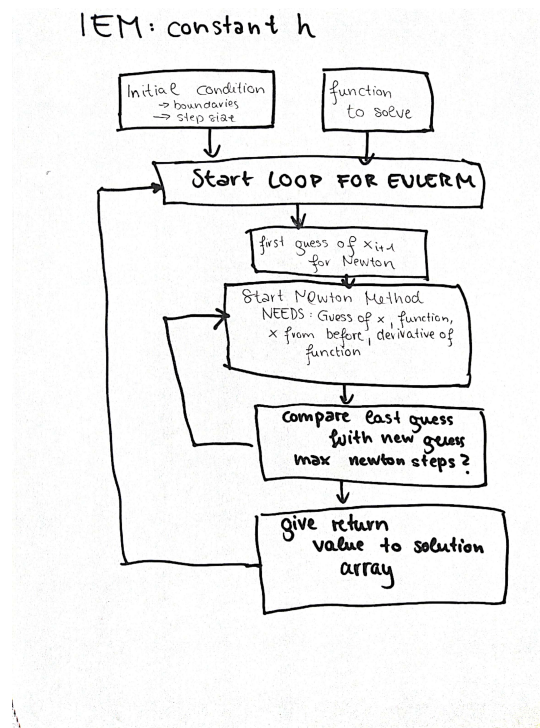 IEM: constant h
Initial condition
→ boundaries
→ step size
function
to solve
Start LOOP FOR EULERM
first guess of x i+1
for Newton
Start Newton Method
NEEDS: Guess of x, function,
x from before, derivative of
function
compare last guess
with new guess
max newton steps?
give return
value to solution
array